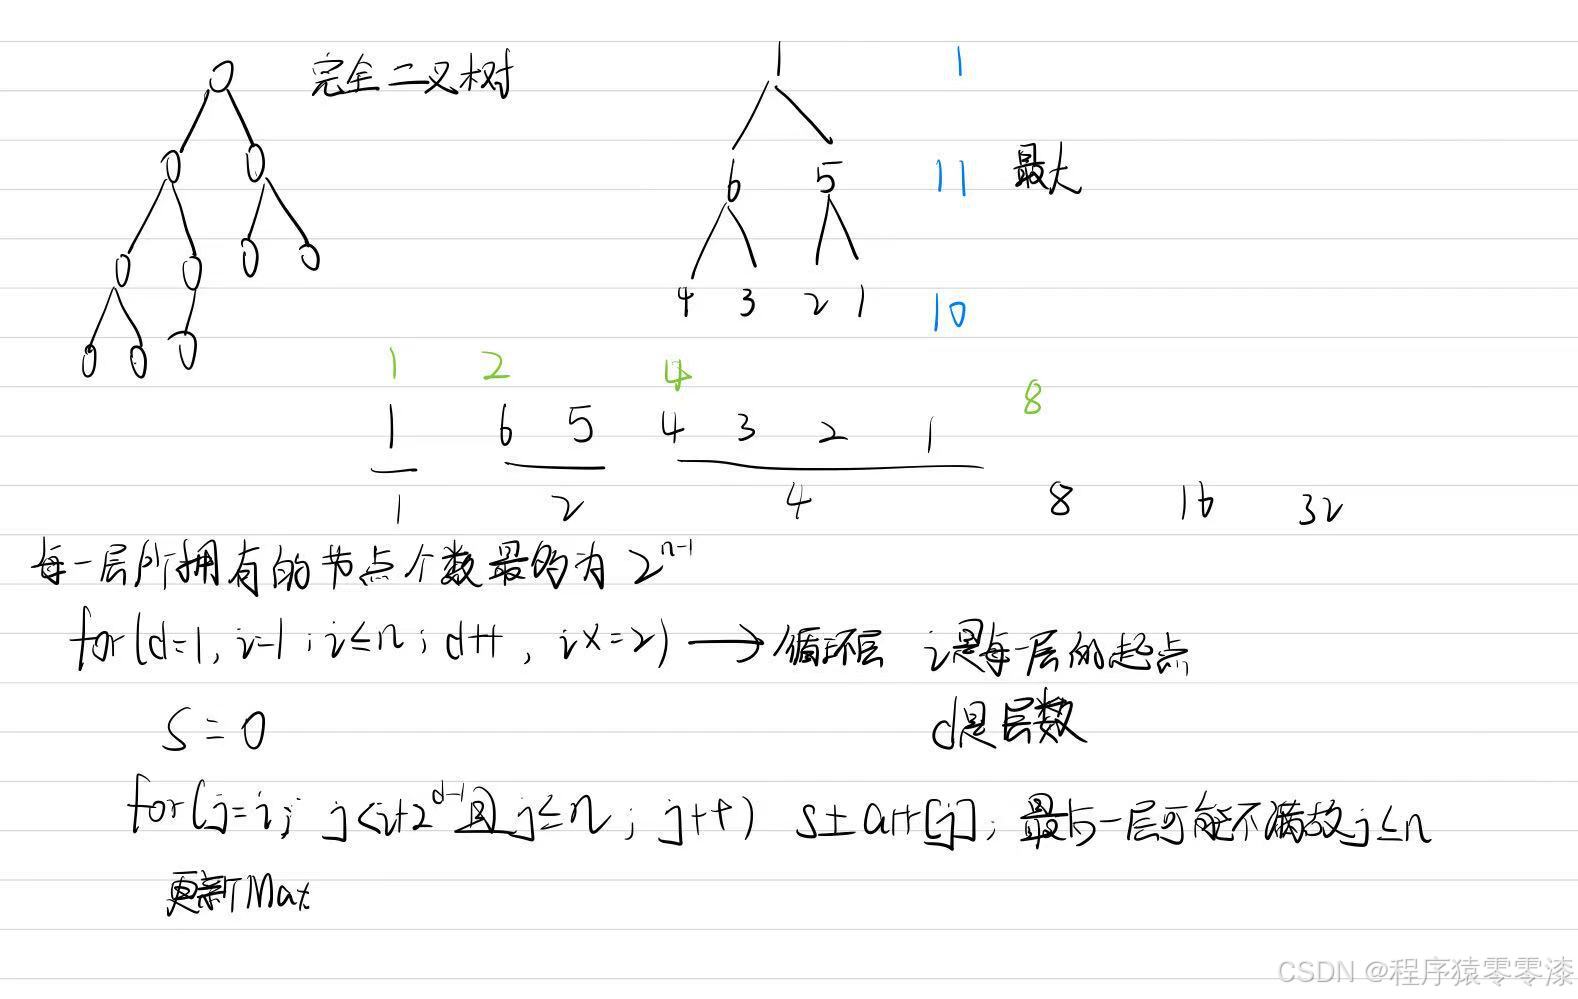 完全二叉树
0
0 0
0 0 0 0
0 0 0
1 1
6 5 11 最大
4 3 2 1 10
1 2 4 8
1 6 5 4 3 2 1
1 2 4 8 16 32
每一层所拥有的节点个数最多为 2^{n-1}
for(d=1, i=1; i≤n; d++, i×=2) → 循环层 i是每一层的起点
S=0 d是层数
for(j=i; j<i+2^{d-1}且j≤n; j++) s±arr[j]; 最后一层可能不满故j≤n
更新Max
CSDN @程序猿零零漆